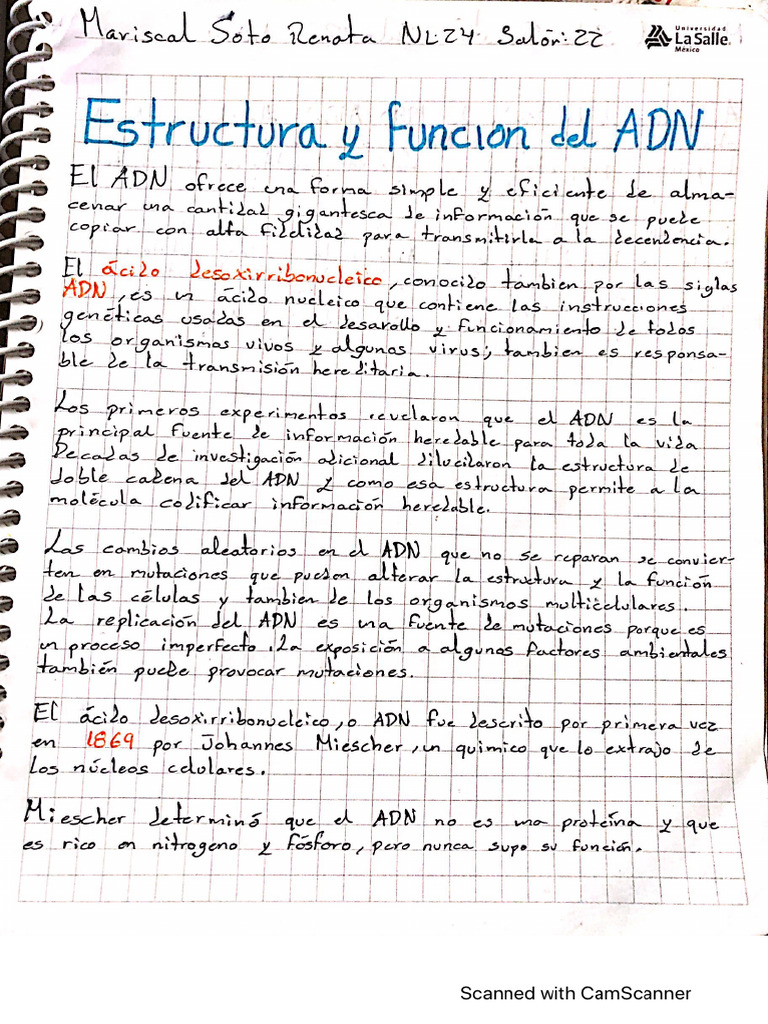 Mariscal Soto Renata NL24 Salón: 22
Universidad
La Salle.
México
Estructura y funcion del ADN
El ADN ofrece una forma simple y eficiente de alma-
cenar una cantidad gigantesca de información que se puede
copiar con alta fidelidad para transmitirla a la decendencia.
El ácido desoxirribonucleico, conocido tambien por las siglas
ADN, es un ácido nucleico que contiene las instrucciones
genéticas usadas en el desarollo y funcionamiento de todos
los organismos vivos y algunos virus; tambien es responsa-
ble de la transmisión hereditaria.
Los primeros experimentos revelaron que el ADN es la
principal fuente de información heredable para toda la vida
Decadas de investigación adicional dilucidaron la estructura de
doble cadena del ADN y como esa estructura permite a la
molécula codificar información heredable.
Los cambios aleatorios en el ADN que no se reparan se convier-
ten en mutaciones que pueden alterar la estructura y la función
de las células y tambien de los organismos multicelulares.
La replicación del ADN es una fuente de mutaciones porque es
un proceso imperfecto. La exposición a algunos factores ambientales
también puede provocar mutaciones.
El ácido desoxirribonucleico, o ADN fue descrito por primera vez
en 1869 por Johannes Miescher, un quimico que lo extrajo de
los núcleos celulares.
Miescher determinó que el ADN no es una proteína y que
es rico en nitrogeno y fósforo, pero nunca supo su función.
Scanned with CamScanner